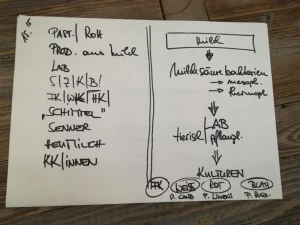 PAST./ROH
PROD. aus Milch
LAB
S/Z/K/B/
FK/WK/HK/
"SCHITTEL"
SENNER
HEUMILCH
KK/innen
Milch
Milchsäurebakterien
→ mesoph.
→ thermoph.
LAB
tierisch/pflanzl.
KULTUREN
FK WEISS ROT BLAU
P. CAND P. LINENS P. ROQU.